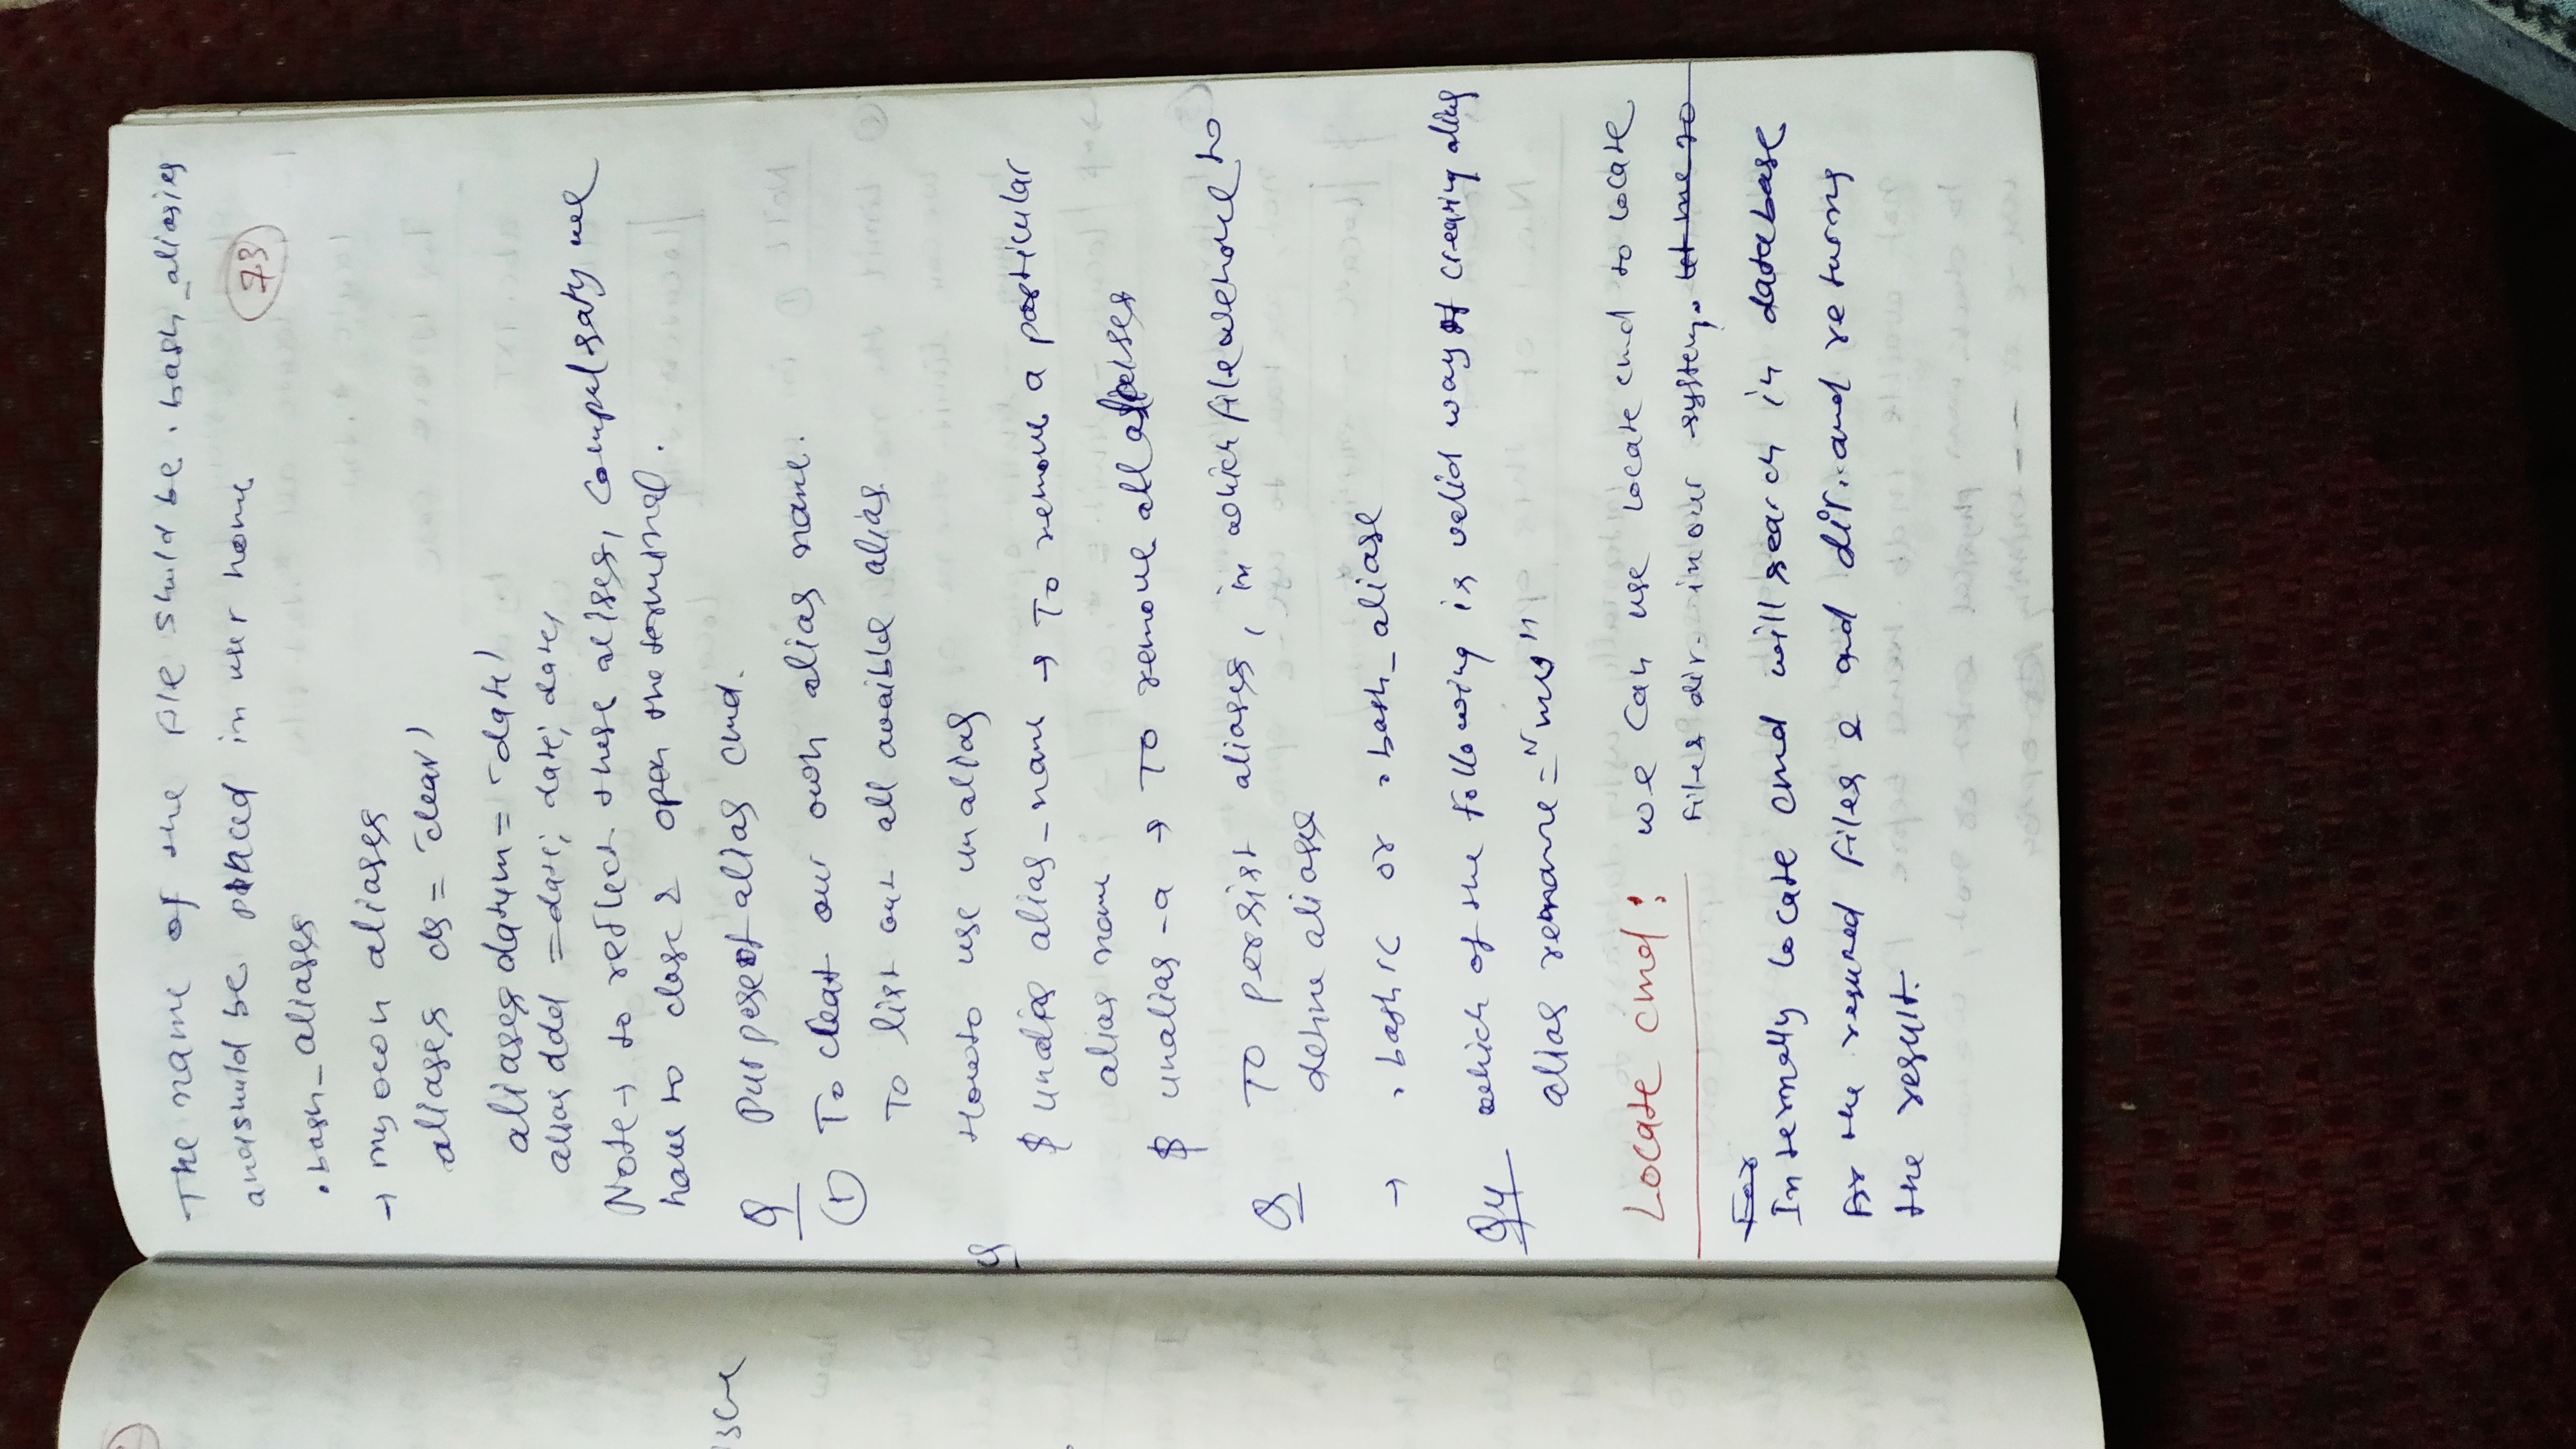 The name of the file shuld be .bash_aliasies
and shuld be placed in user home
73
.bash_aliases
→ my own aliases
aliases cls = 'clear'
aliases datem = 'date'
alias ddd = date; date; date;
Note → to reflect these alises, Compulsaty we
have to close & open the terminal.
Q Purpose of alias cmd.
① To cleat our own alias name.
To list out all avaible alias
How to use unalias
$ unalias alias_name → To remove a particular
alias name
$ unalias -a → To remove all aliases
Q To persist aliases, in which file we have to
define aliases
→ .bashrc or .bash_aliase
Q4 which of the following is valid way of creating alias
alias rename = "mv"
Locate cmd : we can use locate cmd to locate
files dir. in our system. let me so
For
Internally locate cmd will search in database
for the requred files & and dir. and returns
the result.